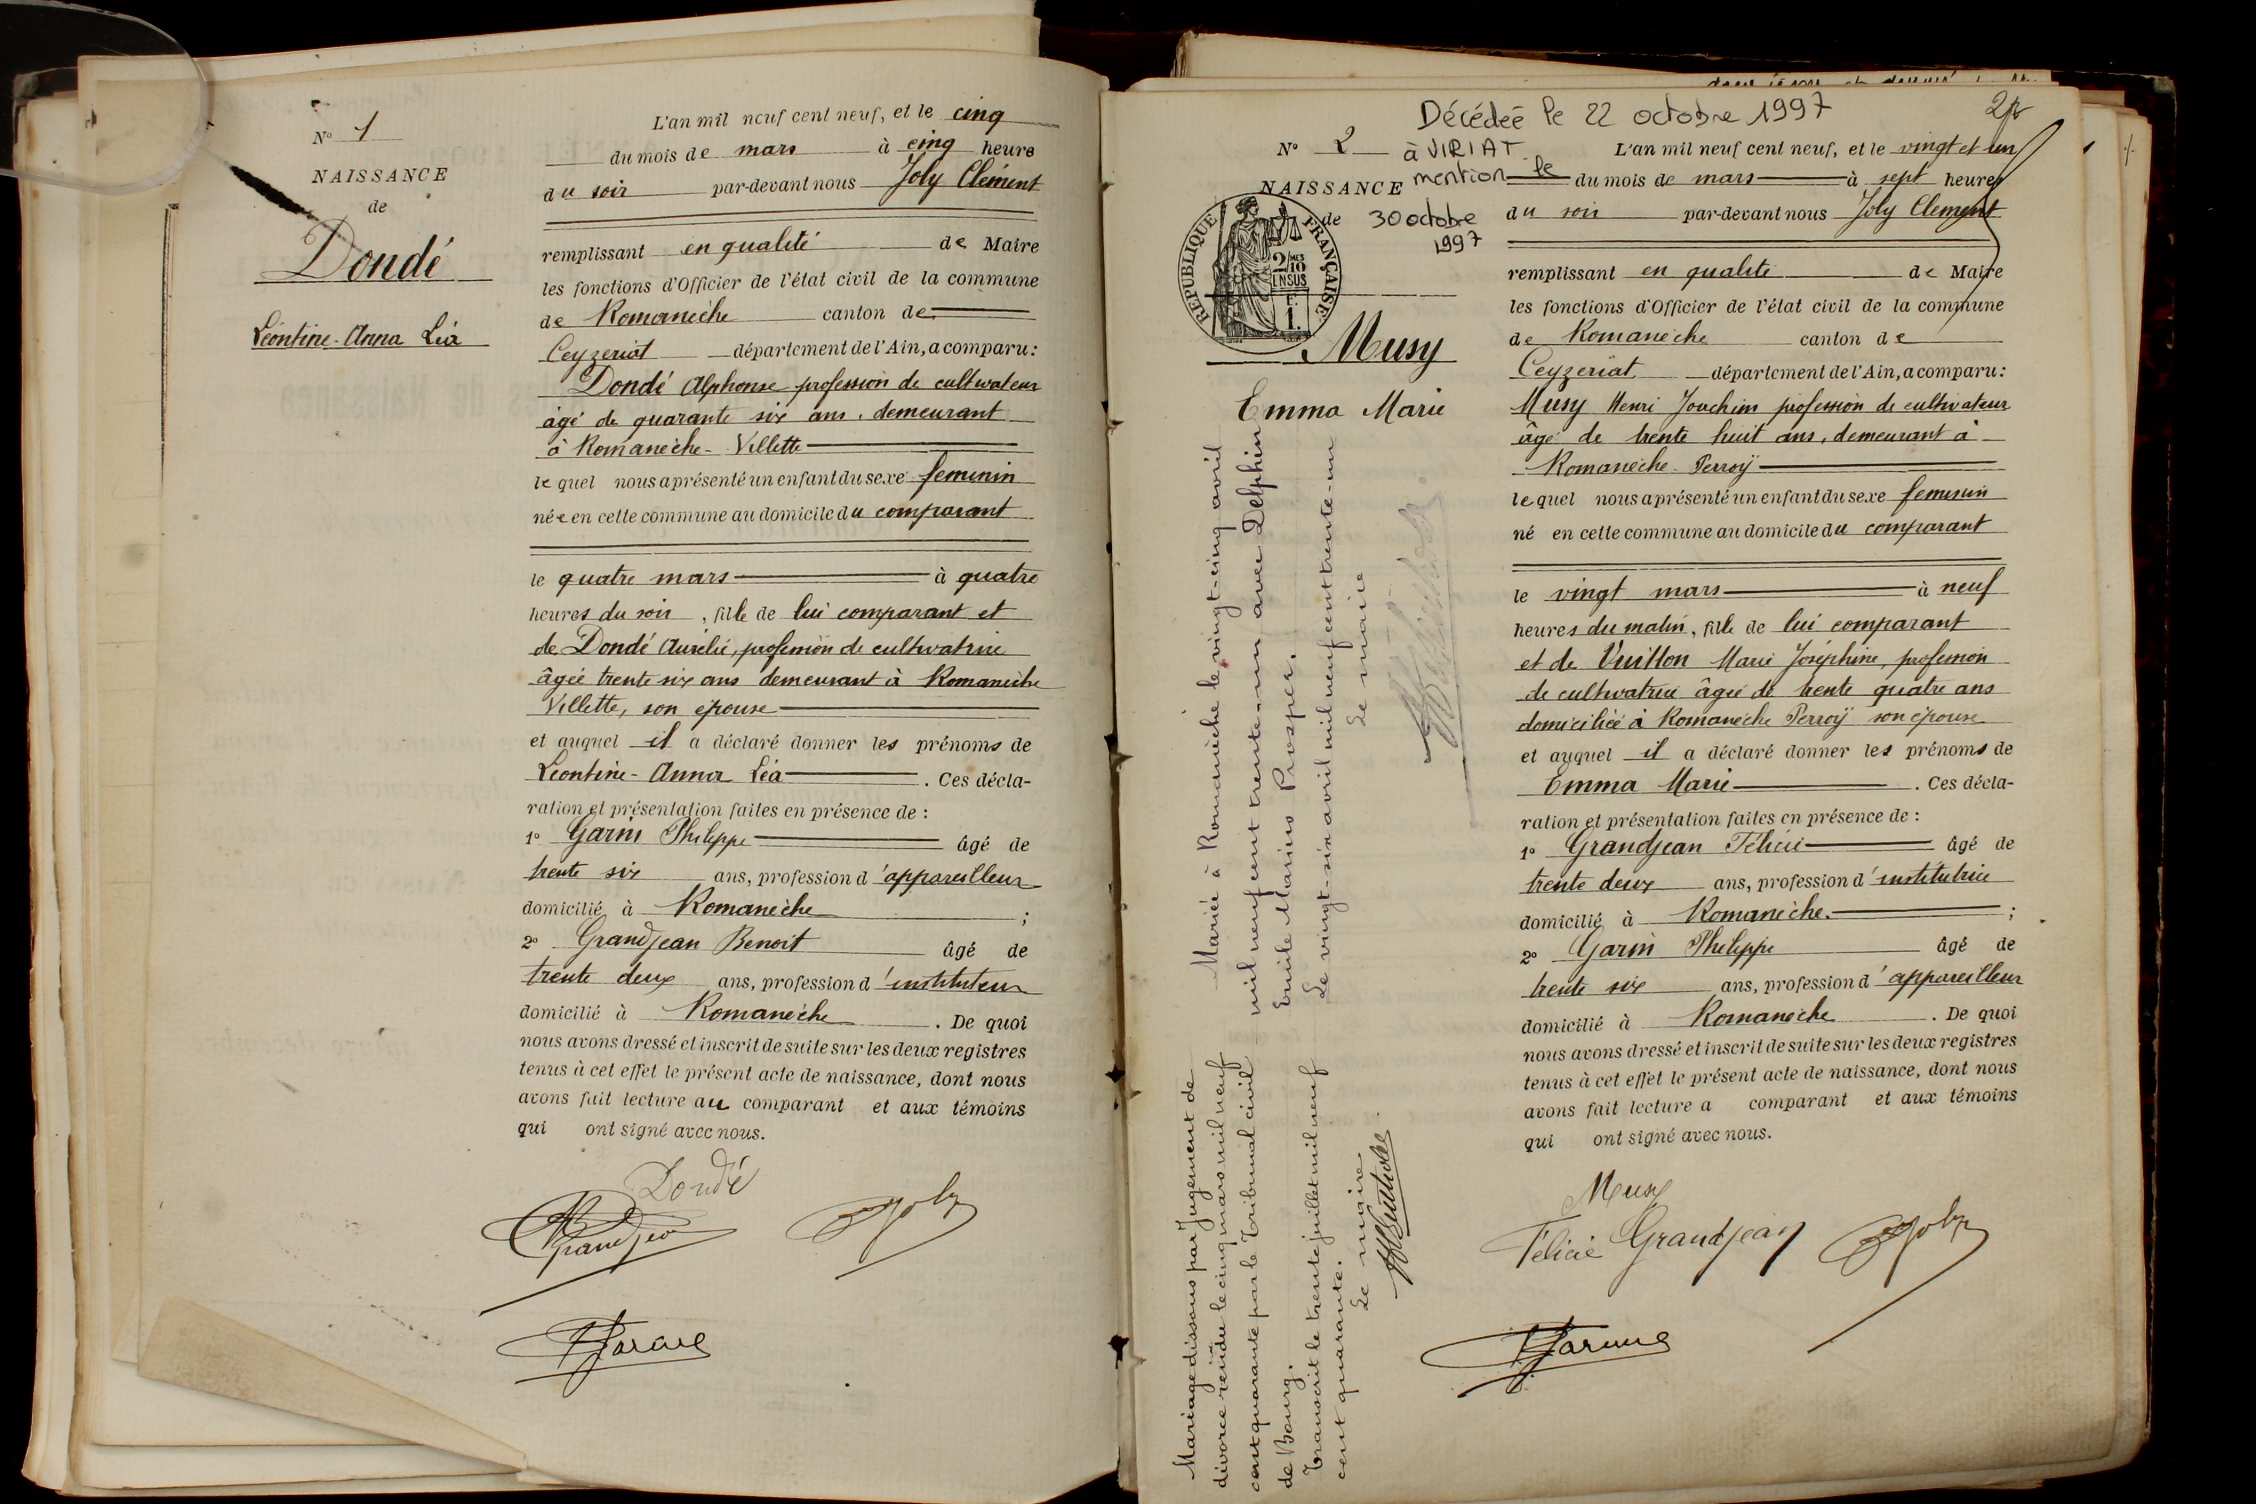 N° 1
NAISSANCE
de
Dondé
Léontine-Anna Léa
L'an mil neuf cent neuf, et le cinq
du mois de mars à cinq heure
du soir par-devant nous Joly Clément
remplissant en qualité de Maire
les fonctions d'Officier de l'état civil de la commune
de Romanèche canton de
Ceyzeriat département de l'Ain, a comparu:
Dondé Alphonse profession de cultivateur
âgé de quarante six ans, demeurant
à Romanèche-Villette
lequel nous a présenté un enfant du sexe feminin
née en cette commune au domicile du comparant
le quatre mars à quatre
heures du soir, fille de lui comparant et
de Dondé Aurélie, profession de cultivatrice
âgée trente six ans demeurant à Romanèche
Villette, son épouse
et auquel il a déclaré donner les prénoms de
Léontine-Anna Léa. Ces décla-
ration et présentation faites en présence de :
1° Garin Philippe âgé de
trente six ans, profession d'appareilleur
domicilié à Romanèche ;
2° Grandjean Benoit âgé de
trente deux ans, profession d'instituteur
domicilié à Romanèche. De quoi
nous avons dressé et inscrit de suite sur les deux registres
tenus à cet effet le présent acte de naissance, dont nous
avons fait lecture au comparant et aux témoins
qui ont signé avec nous.
Dondé
Grandjean Joly
Décédée le 22 octobre 1997
à VIRIAT
mention le
30 octobre
1997
N° 2
NAISSANCE
de
RÉPUBLIQUE FRANÇAISE
2/10 MES
EN SUS
F.
1.
Musy
Emma Marie
Mariée à Romanèche le vingt-cinq avril
mil neuf cent trente-un avec Delphin
Emile Marius Prosper.
Le vingt-six avril mil neuf cent trente-un
Le maire
Mariage dissous par Jugement de
divorce rendu le cinq mars mil neuf
cent quarante par le Tribunal civil
de Bourg.
Transcrit le trente juillet mil neuf
cent quarante.
Le maire
L'an mil neuf cent neuf, et le vingt et un
du mois de mars à sept heures
du soir par-devant nous Joly Clement
remplissant en qualité de Maire
les fonctions d'Officier de l'état civil de la commune
de Romanèche canton de
Ceyzeriat département de l'Ain, a comparu:
Musy Henri Joachim profession de cultivateur
âgé de trente huit ans, demeurant à
Romanèche Perroÿ
lequel nous a présenté un enfant du sexe feminin
né en cette commune au domicile du comparant
le vingt mars à neuf
heures du matin, fille de lui comparant
et de Vuitton Marie Joséphine, profession
de cultivatrice âgée de trente quatre ans
domiciliée à Romanèche Perroÿ son épouse
et auquel il a déclaré donner les prénoms de
Emma Marie. Ces décla-
ration et présentation faites en présence de :
1° Grandjean Félicie âgé de
trente deux ans, profession d'institutrice
domicilié à Romanèche. ;
2° Garin Philippe âgé de
trente six ans, profession d'appareilleur
domicilié à Romanèche. De quoi
nous avons dressé et inscrit de suite sur les deux registres
tenus à cet effet le présent acte de naissance, dont nous
avons fait lecture a comparant et aux témoins
qui ont signé avec nous.
Musy
Félicie Grandjean Joly